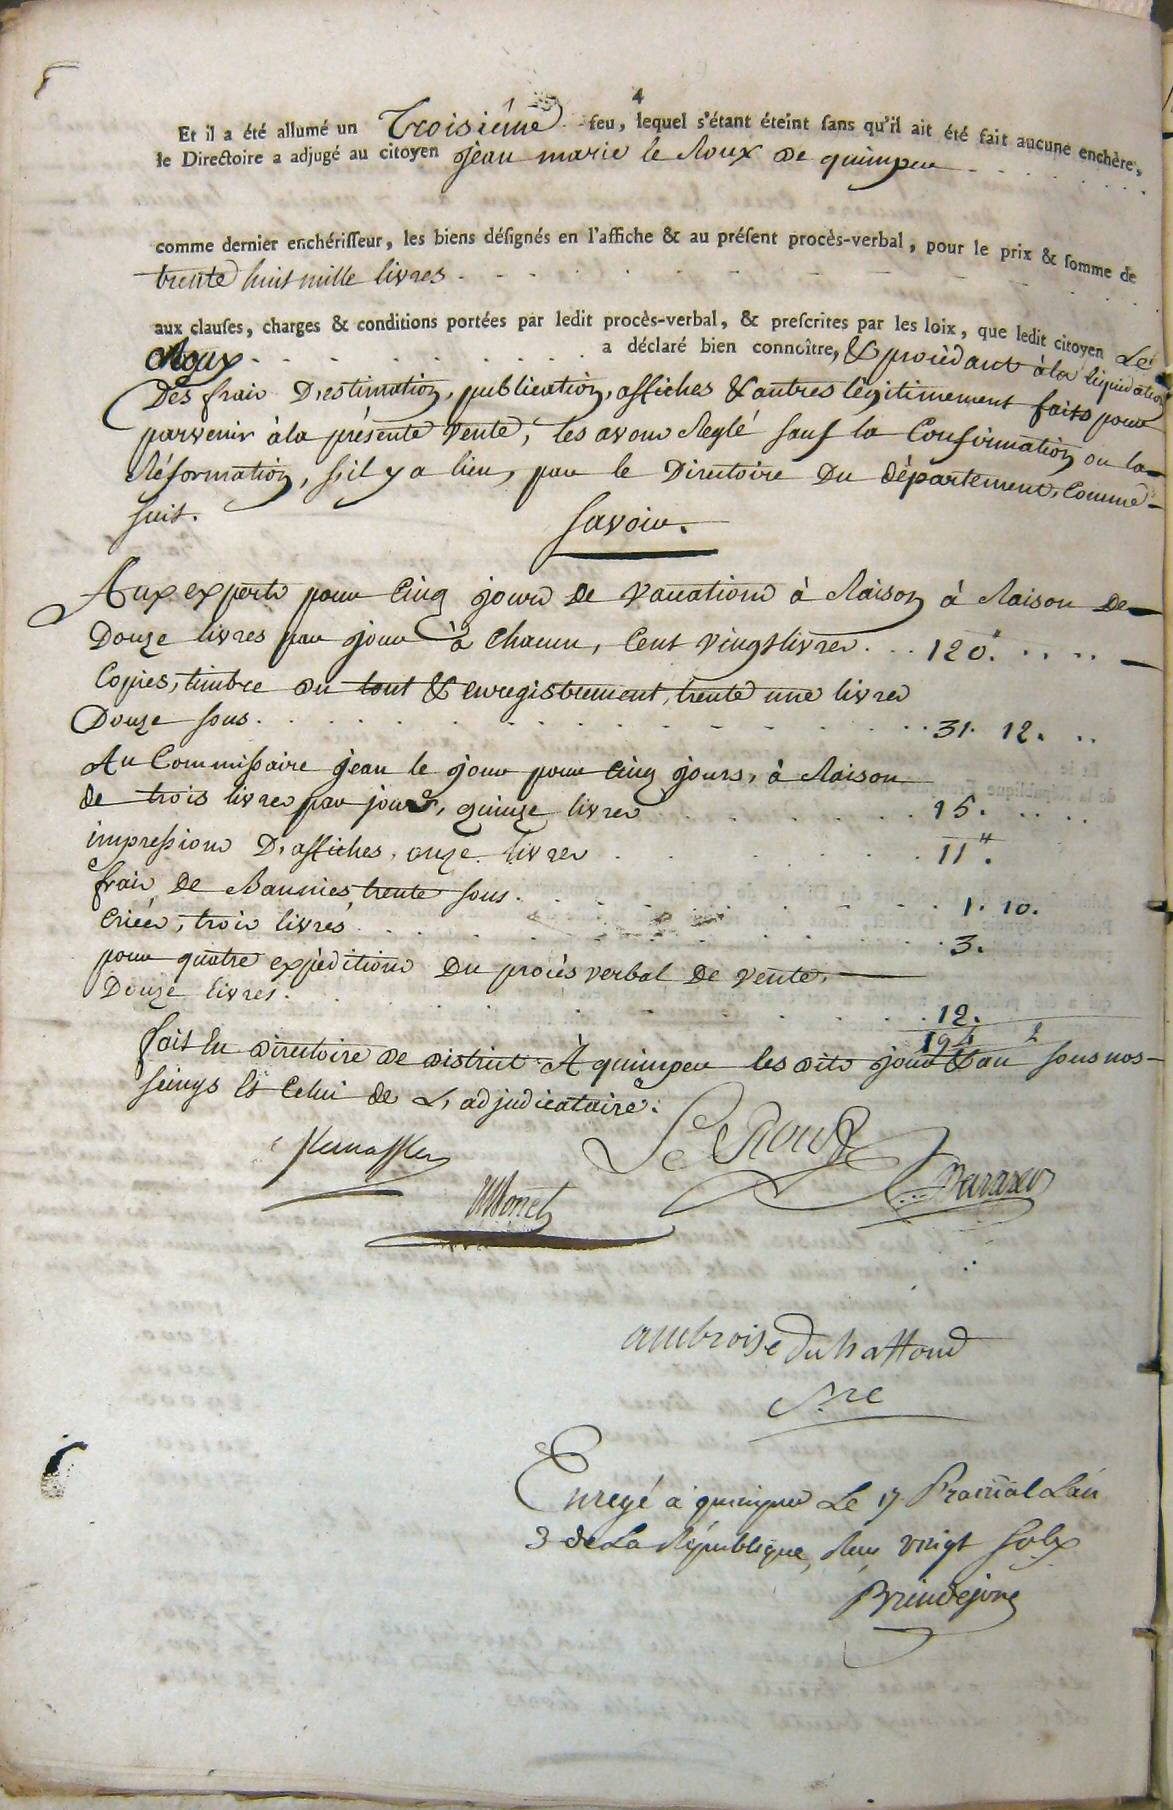 4
Et il a été allumé un Troisième feu, lequel s'étant éteint sans qu'il ait été fait aucune enchère,
le Directoire a adjugé au citoyen Jèan marie le Roux de quimper
comme dernier enchérisseur, les biens désignés en l'affiche & au présent procès-verbal, pour le prix & somme de
trente huit mille livres
aux clauses, charges & conditions portées par ledit procès-verbal, & prescrites par les loix, que ledit citoyen Le
Roux a déclaré bien connoître, & procèdant à la liquidation
Des frais D'estimation, publication, affiches & autres légitimement faits pour
parvenir à la présente vente, les avons Reglé sauf la Confirmation ou la
Réformation, s'il y a lieu, par le Directoire Du département, Comme
suit.
Savoir.
Aux experts pour Cinq jours de Vacations à Raison à Raison De
Douze livres par jour à chacun, Cent vingt livres. 120.
Copies, timbre du tout & enregistrement, trente une livres
Douze sous. 31. 12.
Au Commissaire jean le jour pour Cinq jours, à Raison
de trois livres par jour, quinze livres 15.
impressions D'affiches, onze livres 11.
frais De Bannies, trente sous. 1. 10.
Criées, trois livres 3.
pour quatre expèditions Du procès verbal De vente,
Douze livres. 12.
194 2
fait En Directoire de District A quimper les dits jour & an sous nos
seings Et Celui de L'adjudicataire.
Le Roux
ambroise du haffond
Sre
Enregé a quimper Le 17 Prairial Lan
3 de La République, Reçu vingt Sols
Brindejonc